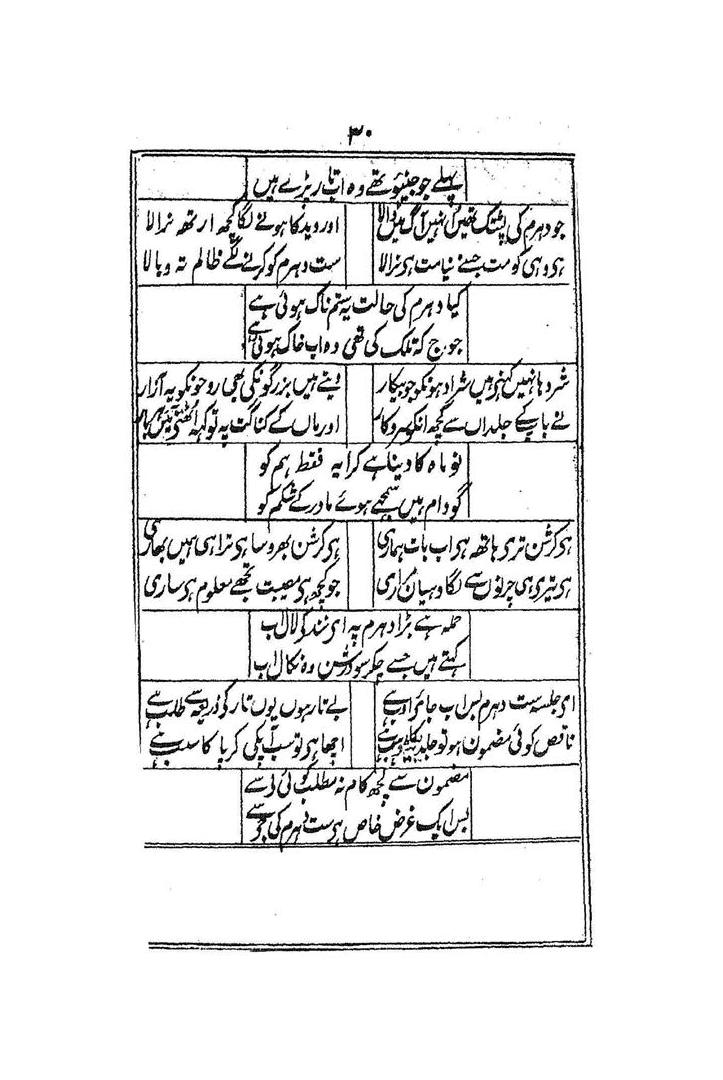 ۳۰
پہلے جو جنیئو تھے وہ اب تار پڑے ہیں
جو دہرم کی پشتک تھیں انہیں آگ میں ڈالا
اور وید کا ہونے لگا کچھ ارتھ نرالا
ہی وہی کو مت جسنے نیا مت ہی نرالا
ست دہرم کو کرنے لگے ظالم تہ و بالا
کیا دہرم کی حالت یہ ستم ناک ہوئی ہے
جو رج کہ تلک کی تھی وہ اب خاک ہوئی ہے
شردہا نہیں کہتی ہیں شرادہونکو جو بیکار
دیتے ہیں بزرگونکی بھی روحونکو یہ آزار
نے باپ کے جلداں سے کچھ انکو سروکار
اور ماں کے کناگت پہ تو کہہ اٹھتی ہیں
نو ماہ کا دینا ہے کرایہ فقط ہم کو
گودام ہیں سمجھے ہوئے مادر کے شکم کو
ہی کرشن تری ہاتھ ہی اب بات ہماری
ہی کرشن بھروسا ہی ترا ہی ہمیں بھاری
ہی تیری ہی چرنوں سے لگا دہیان مراری
جو کچھ ہی مصیبت تجھے معلوم ہی ساری
حملہ ہے بڑا دہرم پہ ای نند کی لال اب
کہتے ہیں جسے چکر سودرشن وہ نکال اب
ای جلسہ ست دہرم بس اب جائے ادب ہے
بے تار ہوں یوں تار کی ذریعہ سے طلب ہے
ناقص کوئی مضمون ہو تو جلد
اچھا ہی تو سب آپکی کرپا کا سبب ہے
مضمون سے کچھ کام نہ مطلب کوئی ئی سے
بس ایک غرض خاص ہی ست دہرم کی جے سے